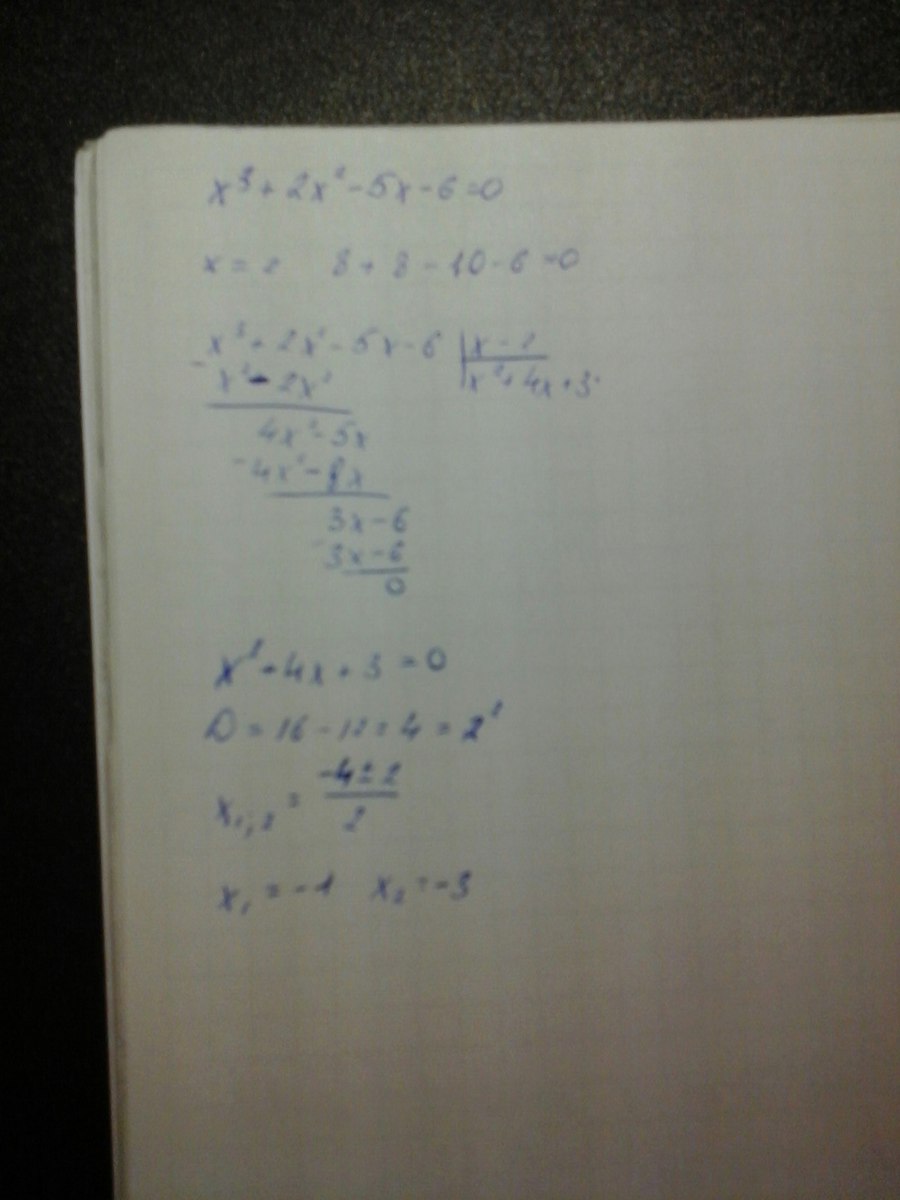 x³ + 2x² - 5x - 6 = 0
x = 2 8 + 8 - 10 - 6 = 0
x³ + 2x² - 5x - 6 | x - 2
- x³ - 2x² | x² + 4x + 3
4x² - 5x
- 4x² - 8x
3x - 6
- 3x - 6
0
x² + 4x + 3 = 0
D = 16 - 12 = 4 = 2²
x₁,₂ = (-4 ± 2) / 2
x₁ = -1 x₂ = -3